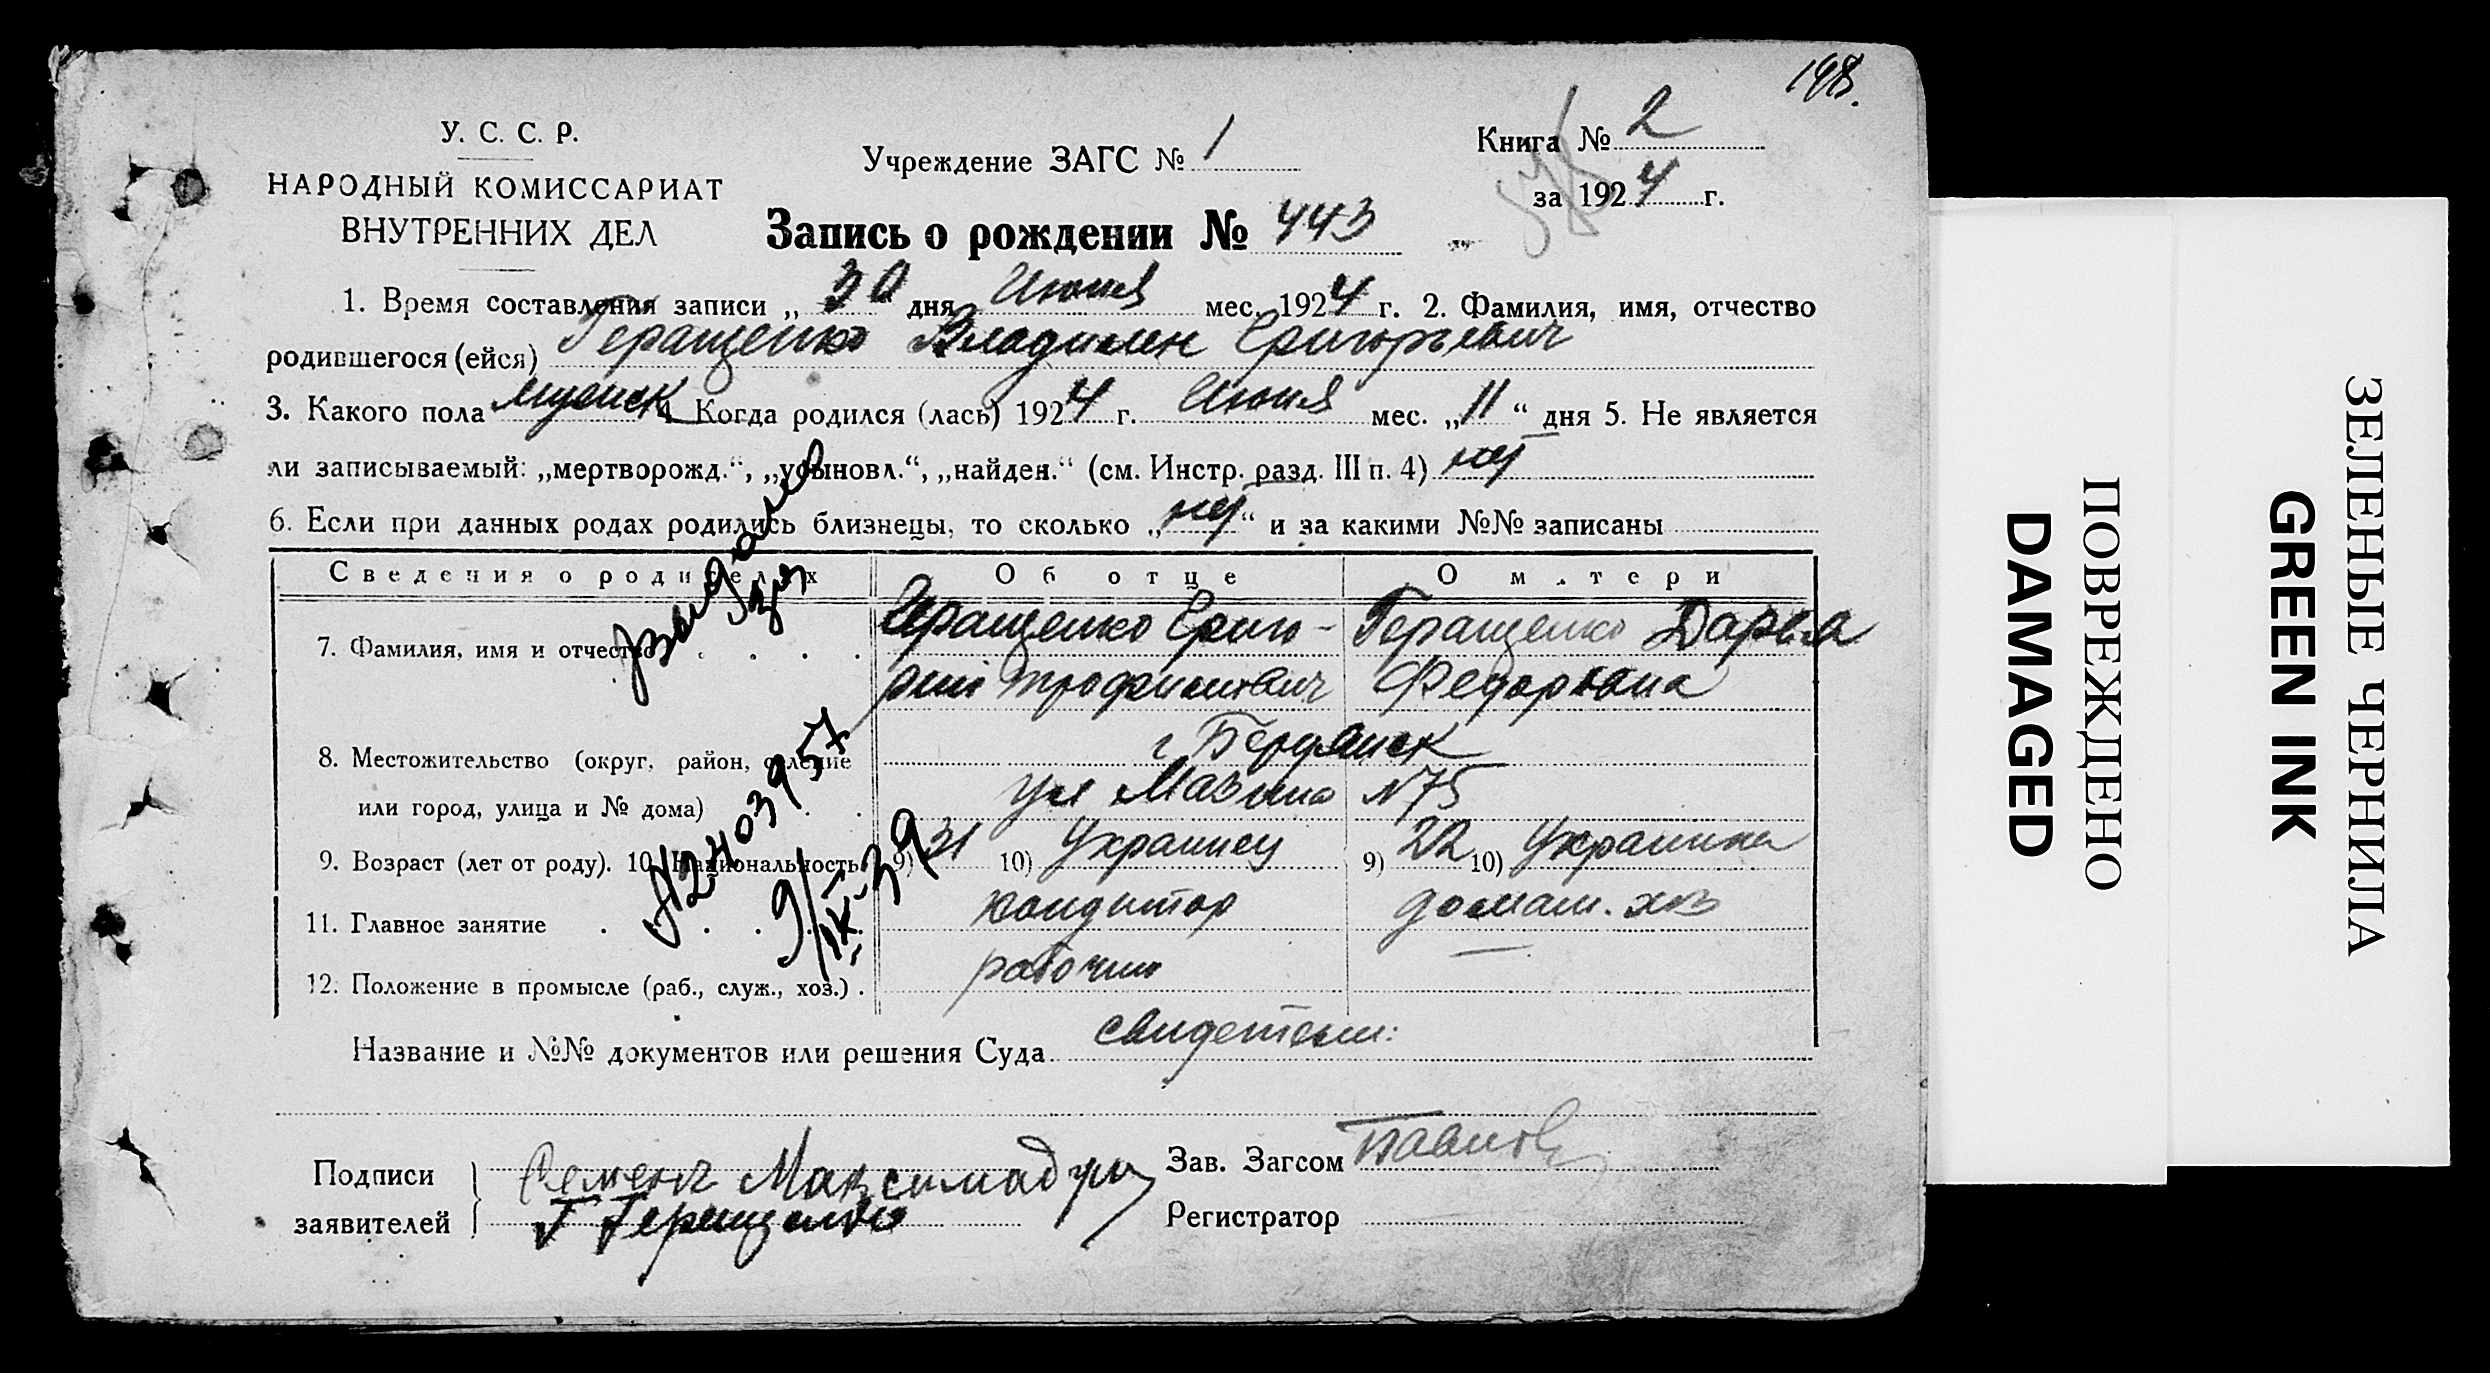 198.
У. С. С. Р.
НАРОДНЫЙ КОМИССАРИАТ
ВНУТРЕННИХ ДЕЛ
Учреждение ЗАГС № 1
Книга № 2
за 1924 г.
Запись о рождении № 443
1. Время составления записи „ 30 дня Июня мес. 1924 г. 2. Фамилия, имя, отчество
родившегося (ейся) Геращенко Владилен Григорьевич
3. Какого пола мужск 4. Когда родился (лась) 1924 г. Июня мес. „11“ дня 5. Не является
ли записываемый: „мертворожд.“, „усыновл.“, „найден.“ (см. Инстр. разд. III п. 4) нет
6. Если при данных родах родились близнецы, то сколько „нет“ и за какими №№ записаны
Сведения о родителях Об отце О матери
7. Фамилия, имя и отчество Геращенко Григо- Геращенко Дарья
рий Трофимович Федоровна
8. Местожительство (округ, район, селение г Бердянск
или город, улица и № дома) ул Мазина №75
9. Возраст (лет от роду). 10. Национальность 9) 31 10) Украинец 9) 22 10) Украинка
11. Главное занятие кондитор домаш. хоз
12. Положение в промысле (раб., служ., хоз.) рабочий —
Название и №№ документов или решения Суда свидетели:
Подписи
заявителей
Семенъ
Г Геращенко
Зав. Загсом Павлов
Регистратор
№2403957
9/IX-39
ПОВРЕЖДЕНО
DAMAGED
ЗЕЛЕНЫЕ ЧЕРНИЛА
GREEN INK